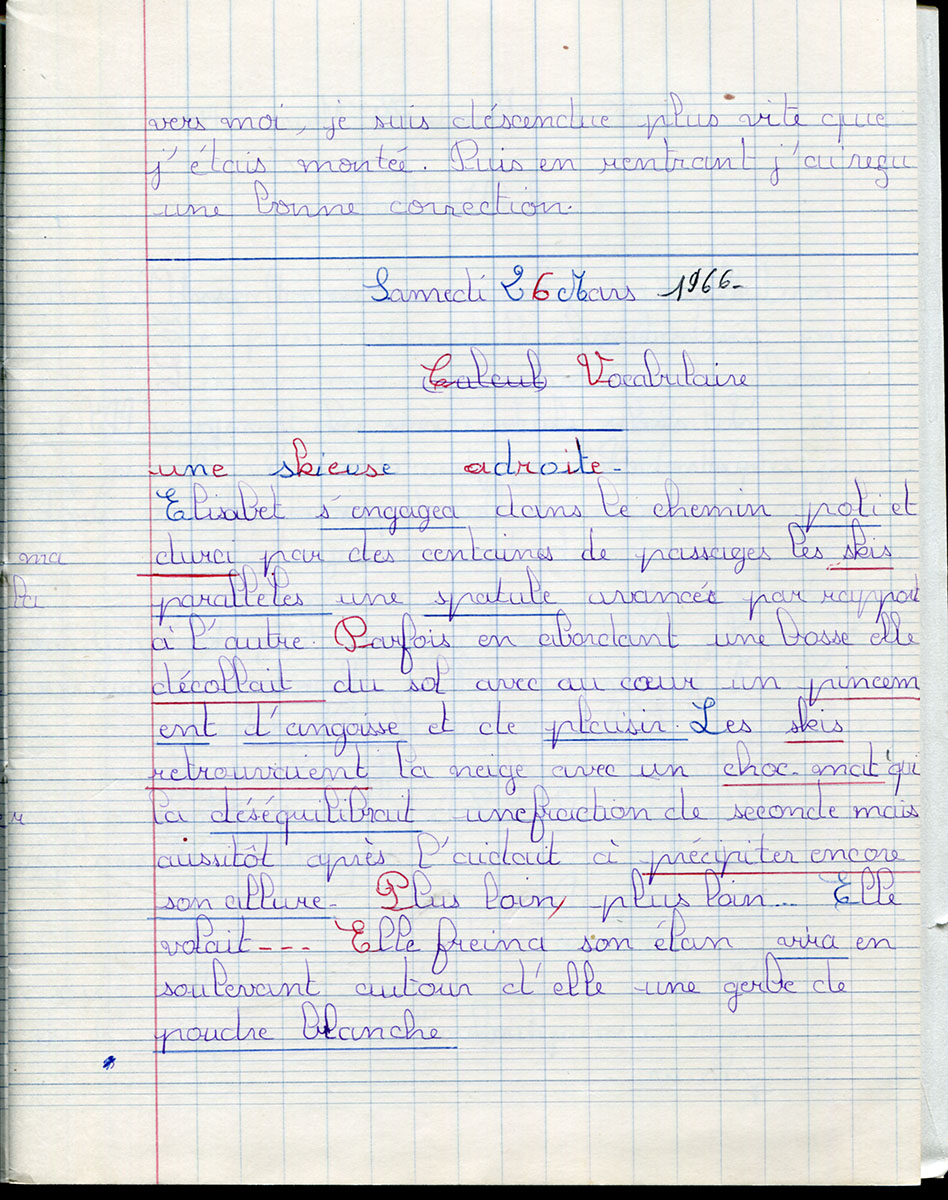 vers moi, je suis déscendue plus vite que
j'étais montée. Puis en rentrant j'ai reçu
une bonne correction.
Samedi 26 Mars 1966-
Calcul Vocabulaire
une skieuse adroite-
Elisabet s'engagea dans le chemin poli et
ma
durci par des centaines de passages les skis
parallèles une spatule avancée par rapport
à l'autre. Parfois en abordant une bosse elle
décollait du sol avec au cœur un pincem
ent d'angoisse et de plaisir. Les skis
retrouvaient la neige avec un choc-mat qui
la déséquilibrait une fraction de seconde mais
aussitôt après l'aidait à précipiter encore
son allure- Plus loin, plus loin... Elle
volait--- Elle freina son élan vira en
soulevant autour d'elle une gerbe de
poudre blanche